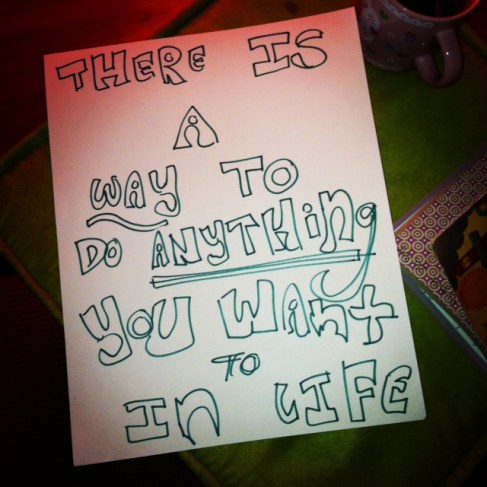 THERE IS
A
WAY TO
DO ANYTHiNg
YOU WANT
TO
IN LIFE